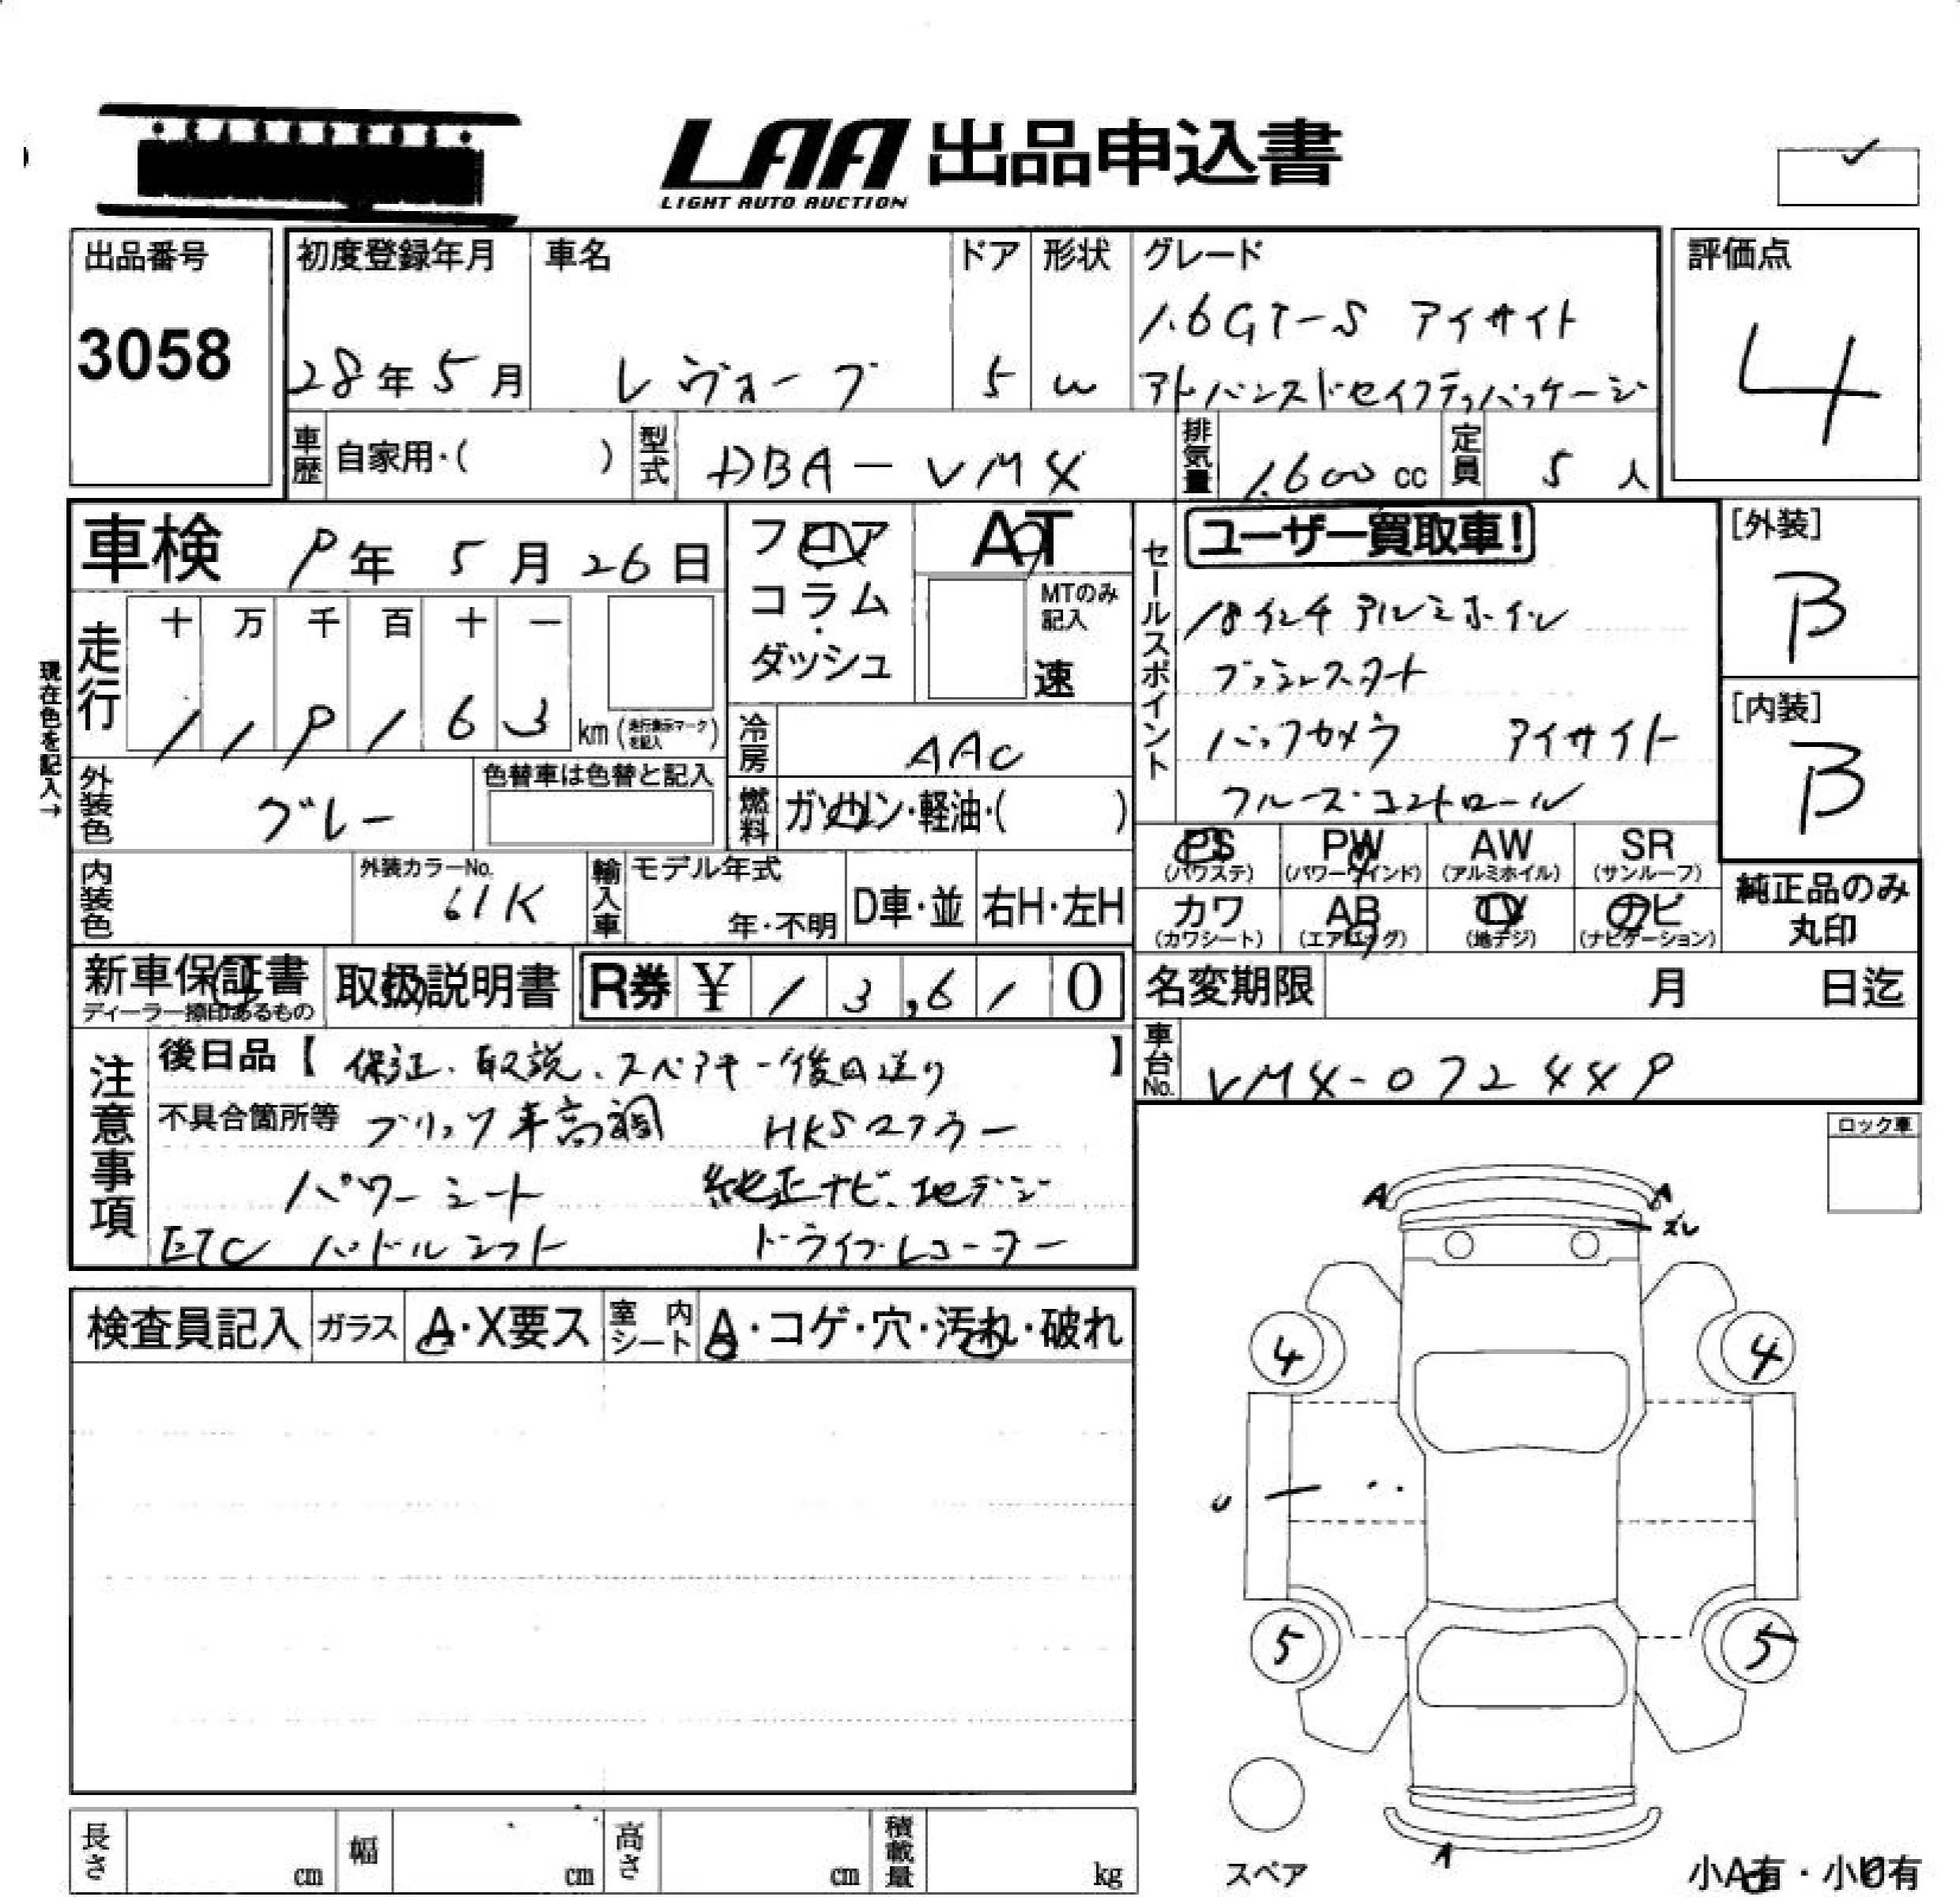 LAA 出品申込書
LIGHT AUTO AUCTION
出品番号
3058
初度登録年月
28年5月
車名
レヴォーグ
ドア
5
形状
W
グレード
1.6GT-S アイサイト
アドバンスドセイフティパッケージ
評価点
4
車歴 自家用・( )
型式 DBA-VM4
排気量 1,600 cc
定員 5 人
車検 9年 5月 26日
フロア
コラム
・
ダッシュ
AT
MTのみ
記入
速
セールスポイント
ユーザー買取車!
18インチアルミホイル
プッシュスタート
バックカメラ アイサイト
クルーズコントロール
[外装]
B
[内装]
B
現在色を記入→
走行
十 万 千 百 十 一
1 1 9 1 6 3 km (走行表示マークを記入)
冷房 AAC
燃料 ガソリン・軽油・( )
外装色 グレー
色替車は色替と記入
内装色
外装カラーNo.
61K
輸入車
モデル年式
年・不明
D車・並
右H・左H
PS (パワステ)
PW (パワーウインド)
AW (アルミホイル)
SR (サンルーフ)
カワ (カワシート)
AB (エアバッグ)
TV (地デジ)
ナビ (ナビゲーション)
純正品のみ
丸印
新車保証書
ディーラー捺印あるもの
取扱説明書
R券 ¥ 1 3,6 1 0
名変期限 月 日迄
車台No. VM4-072449
注意事項
後日品【 保証、取説、スペアキー後日送り 】
不具合箇所等 ブリッツ車高調 HKSマフラー
パワーシート 純正ナビ、地デジ
ETC パドルシフト ドライブレコーダー
ロック車
A A
ズレ
検査員記入 ガラス A・X要ス 室内シート A・コゲ・穴・汚れ・破れ
4 4
U
5 5
スペア
A
小A有・小U有
長さ cm
幅 cm
高さ cm
積載量 kg